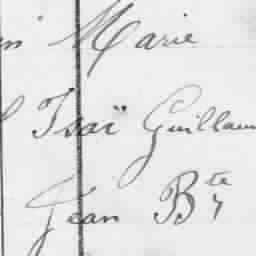 Marie
Isaï Guillaum
Jean Bte